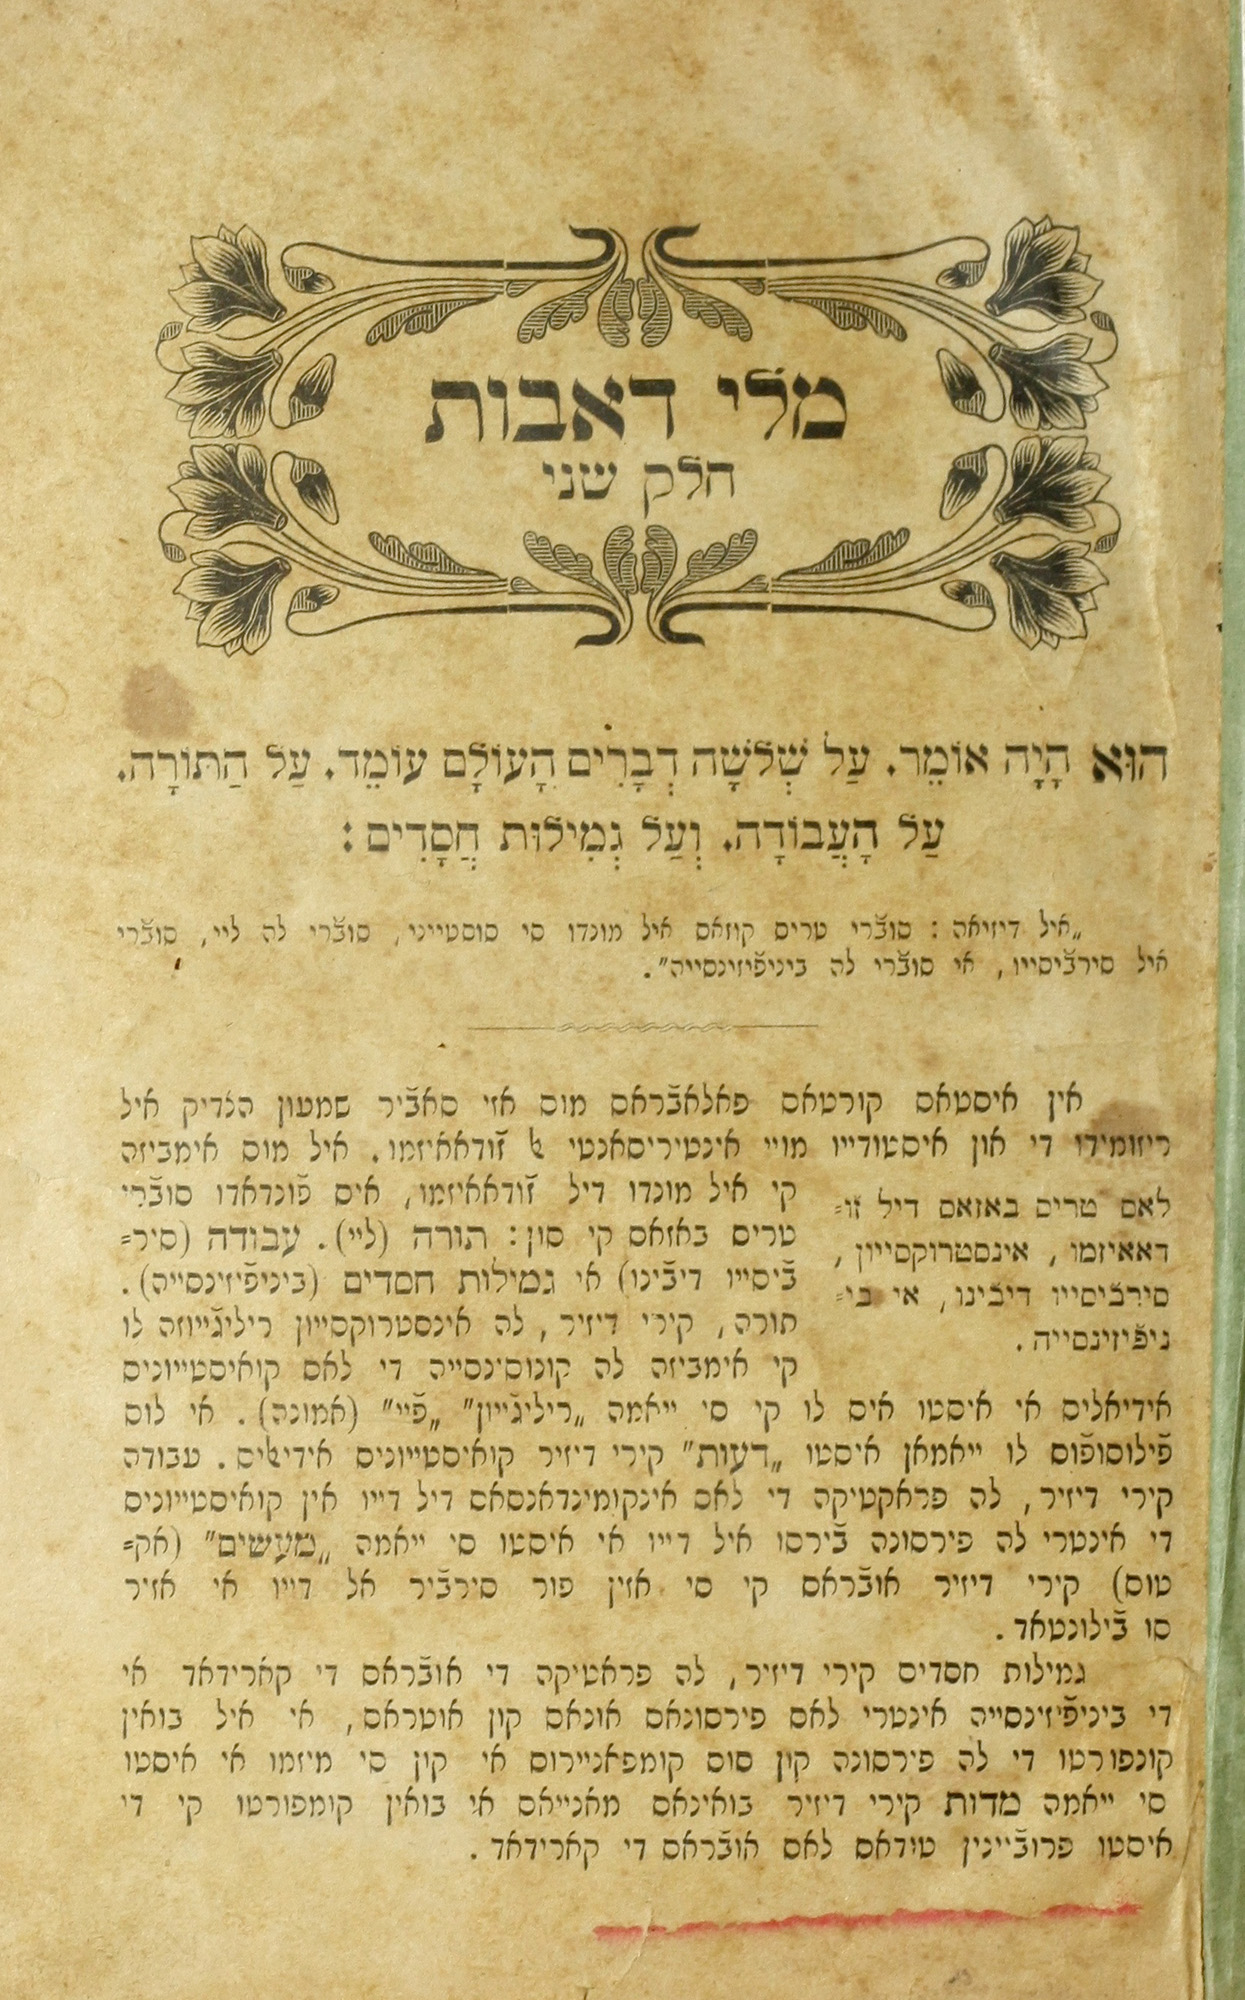 מלי דאבות
חלק שני
הוּא הָיָה אוֹמֵר. עַל שְׁלֹשָׁה דְבָרִים הָעוֹלָם עוֹמֵד. עַל הַתּוֹרָה.
עַל הָעֲבוֹדָה. וְעַל גְּמִילוּת חֲסָדִים:
„איל דיזיאה : סובֿרי טריס קוזאס איל מונדו סי סוסטייני, סובֿרי לה ליי, סובֿרי
איל סירבֿיסייו, אי סובֿרי לה ביניפֿיזינסייה".
אין איסטאס קורטאס פאלאבֿראס מוס אזי סאבֿיר שמעון הצדיק איל
ריזומידו די און איסטודייו מויי אינטיריסאנטי ﭏ זֿ֗ודאאיזמו. איל מוס אימביזה
קי איל מונדו דיל זֿודאאיזמו, איס פֿונדאדו סובֿרי
טריס באזאס קי סון: תורה (ליי). עבודה (סיר=
בֿיסייו דיבֿינו) אי גמילות חסדים (ביניפֿיזינסייה).
תורה, קירי דיזיר, לה אינסטרוקסייון ריליגֿייוזה לו
קי אימביזה לה קונוסינסייה די לאס קואיסטייוניס
לאס טריס באזאס דיל זו=
דאאיזמו, אינסטרוקסייון,
סירבֿיסייו דיבֿינו, אי בי=
ניפֿיזינסייה.
אידיאליס אי איסטו איס לו קי סי ייאמה „ריליגֿייון" „פֿיי" (אמונה). אי לוס
פֿילוסופֿוס לו ייאמאן איסטו „דעות" קירי דיזיר קואיסטייוניס אידיﭏיס. עבודה
קירי דיזיר, לה פראקטיקה די לאס אינקומינדאנסאס דיל דייו אין קואיסטייוניס
די אינטרי לה פירסונה בֿירסו איל דייו אי איסטו סי ייאמה „מעשים" (אק=
טוס) קירי דיזיר אובֿראס קי סי אזין פור סירבֿיר אל דייו אי אזיר
סו בֿילונטאד.
גמילות חסדים קירי דיזיר, לה פראטיקה די אובֿראס די קארידאד אי
די ביניפֿיזינסייה אינטרי לאס פירסונאס אונאס קון אוטראס, אי איל בואין
קונפורטו די לה פירסונה קון סוס קומפאנייירוס אי קון סי מיזמו אי איסטו
סי ייאמה מדות קירי דיזיר בואינאס מאנייאס אי בואין קומפורטו קי די
איסטו פרובֿיינין טודאס לאס אובֿראס די קארידאד.